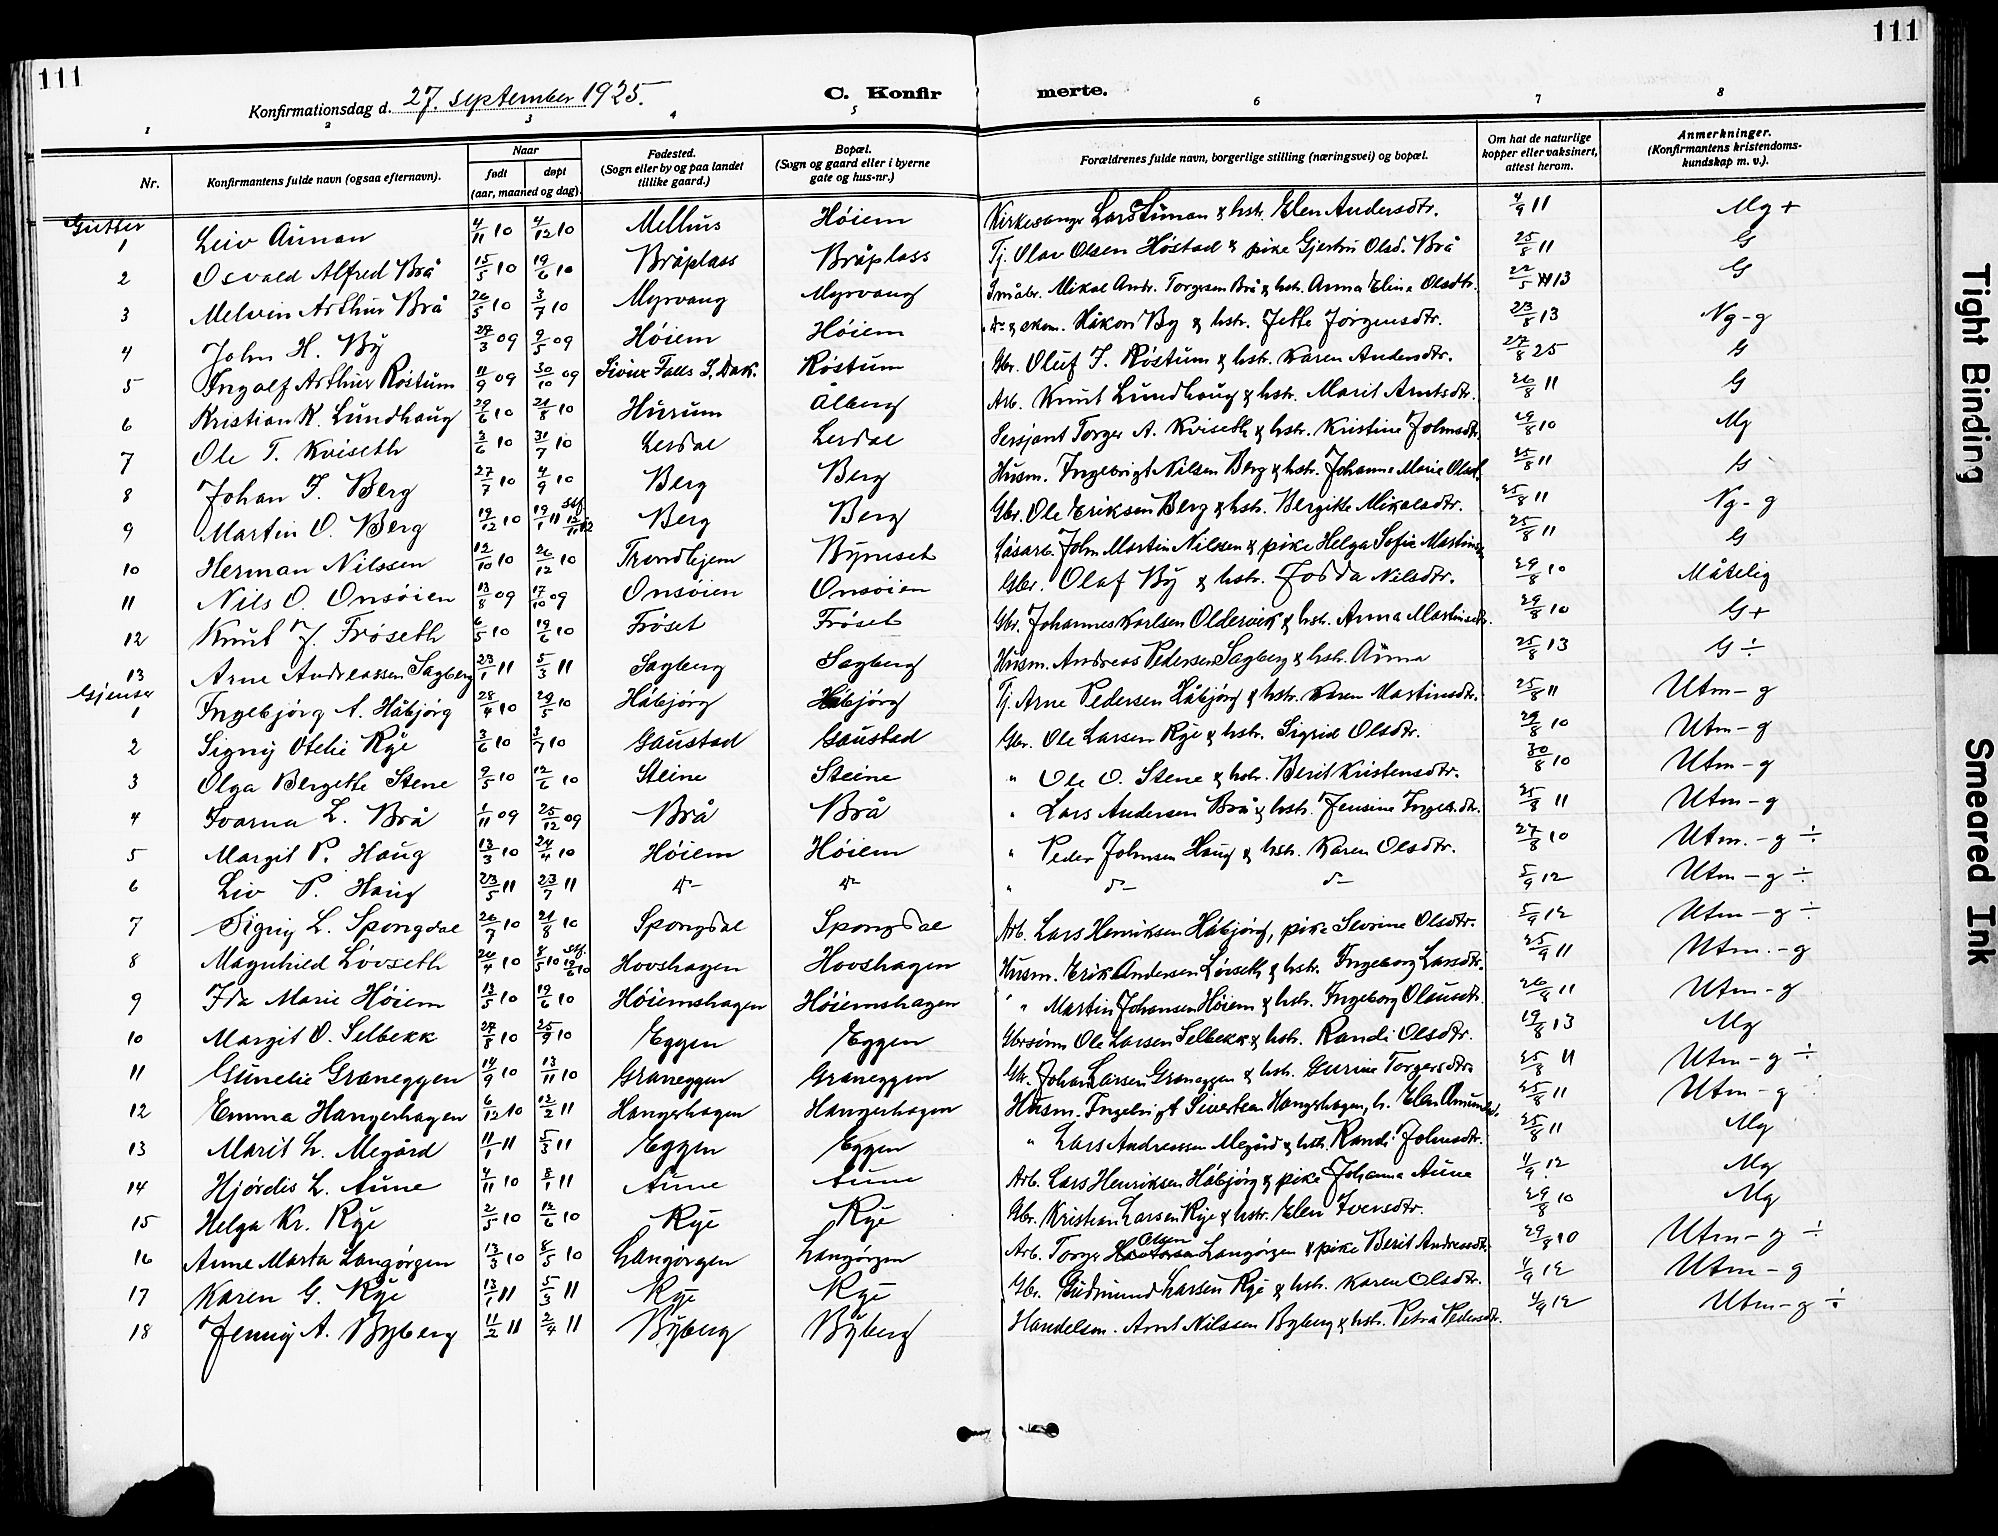 111
111
Konfirmationsdag d. 27. september 1925.
C. Konfir
merte.
1 2 3 4 5 6 7 8
Nr.
Konfirmantens fulde navn (ogsaa efternavn).
Naar
født døpt
(aar, maaned og dag).
Fødested.
(Sogn eller by og paa landet
tillike gaard.)
Bopæl.
(Sogn og gaard eller i byerne
gate og hus-nr.)
Forældrenes fulde navn, borgerlige stilling (næringsvei) og bopæl.
Om hat de naturlige
kopper eller vaksinert,
attest herom.
Anmerkninger.
(Konfirmantens kristendoms-
kundskap m. v.).
Gutter
1 Leiv Aunan 4/11 10 4/12 10 Melhus Høiem Kirkesanger Lars Aunan & hstr. Elen Andersdtr. 4/9 11 Mg +
2 Osvald Alfred Brå 15/5 10 19/6 10 Bråplass Bråplass Tj. Olav Olsen Høstad & pike Gjertru Olsd. Brå 25/8 11 G
3 Melvin Arthur Brå 26/5 10 3/7 10 Myrvang Myrvang Småbr. Mikal Andr. Torgersen Brå & hstr. Anna Elina Olsdtr. 22/5 13 G
4 John H. By 27/3 09 9/5 09 Høiem Høiem Håkon By & hstr. Jette Jørgensdtr. 23/8 13 Ng - g
5 Ingolf Arthur Røstum 11/9 09 30/10 09 Sioux Falls S. Dak. Røstum Gbr. Oluf J. Røstum & hstr. Karen Andersdtr. 27/8 25 G
6 Kristian K. Lundhaug 29/6 10 21/8 10 Hurum Ålberg Arb. Knut Lundhaug & hstr. Marit Arntsdtr. 26/8 11 G
7 Ole T. Kviseth 3/6 10 31/7 10 Lerdal Lerdal Sersjant Torger A. Kviseth & hstr. Kristine Johnsdtr. 29/8 10 Mg
8 Johan I. Berg 27/7 10 4/9 10 Berg Berg Husm. Ingebrigt Nilsen Berg & hstr. Johanna Marie Olsd. 25/8 11 G
9 Martin O. Berg 19/12 10 19/1 11 Berg Berg Gbr. Ole Eriksen Berg & hstr. Bergitte Mikalsdtr. 25/8 11 Ng - g
10 Herman Nilssen 12/10 10 26/12 10 Trondhjem Byneset Løsarb. John Martin Nilssen & pike Helga Sofie Martinsen 25/8 11 G
11 Nils O. Onsøien 13/8 09 17/10 09 Onsøien Onsøien Gbr. Olaf By & hstr. Nilsdtr. 29/8 10 Måtelig
12 Knut J. Frøseth 6/5 10 19/6 10 Frøset Frøset Gbr. Johannes Karlsen Oldervik & hstr. Anna Martinsdtr. 29/8 10 G +
13 Arne Andreassen Sagberg 23/1 11 5/3 11 Sagberg Sagberg Husm. Andreas Pedersen Sagberg & hstr. Anna 25/8 13 G ÷
Gjenter
1 Ingebjørg A. Håbjørg 28/4 10 29/5 10 Håbjørg Håbjørg Tj. Arne Pedersen Håbjørg & hstr. Karen Martinsdtr. 25/8 11 Utm - g
2 Signy Otelie Rye 3/6 10 3/7 10 Gaustad Gaustad Gbr. Ole Larsen Rye & hstr. Sigrid Olsdtr. 29/8 10 Utm - g
3 Olga Bergette Stene 9/5 10 12/6 10 Steine Steine " Ole O. Stene & hstr. Berit Kristensdtr. 30/8 10 Utm - g
4 Ivarna L. Brå 1/11 09 25/12 09 Brå Brå " Lars Andersen Brå & hstr. Jensine Ingebr.dtr. 25/8 11 Utm - g
5 Margit P. Haug 13/3 10 24/4 10 Høiem Høiem " Peder Johnsen Haug & hstr. Karen Olsdtr. 27/8 10 Utm. - g ÷
6 Liv P. Haug 23/5 11 23/7 11 do- do- " do- do- 5/9 12 Utm - g ÷
7 Signy L. Spongdal 26/7 10 21/8 10 Spongdal Spongdal Arb. Lars Henriksen Håbjørg, pike Sevrine Olsdtr. 5/9 12 Utm - g ÷
8 Magnhild Løvseth 26/4 10 8/5 10 Hovshagen Hovshagen Husm. Erik Andersen Løvseth & hstr. Ingeborg Larsdtr. 25/9 11 Utm. - g
9 Ida Marie Høiem 13/5 10 19/6 10 Høiemshagen Høiemshagen " Martin Johansen Høiem & hstr. Ingeborg Olausdtr. 26/8 11 Utm - g
10 Margit O. Selbekk 27/8 10 25/9 10 Eggen Eggen Gbrsønn Ole Larsen Selbekk & hstr. Randi Olsdtr. 19/8 13 Mg
11 Gunelie Graneggen 14/9 10 13/11 10 Graneggen Graneggen Gbr. Johan Larsen Graneggen & hstr. Gurine Torgersdtr. 25/8 11 Utm - g ÷
12 Emma Hangerhagen 6/12 10 12/2 11 Hangerhagen Hangerhagen Husm. Ingebrigt Sivertsen Hangerhagen, h. Elen Amundsd. 25/8 11 Utm - g
13 Marit L. Megård 11/1 11 5/3 11 Eggen Eggen " Lars Andreassen Megård & hstr. Randi Johnsdtr. 25/8 11 Mg
14 Hjørdis L. Aune 4/11 10 8/1 11 Aune Aune Arb. Lars Henriksen Håbjørg & pike Johanna Aune 4/9 12 Mg
15 Helga Kr. Rye 2/5 10 12/6 10 Rye Rye Gbr. Kristian Larsen Rye & hstr. Elen Iversdtr. 29/8 10 Mg
16 Anne Marta Langørgen 13/3 10 8/5 10 Langørgen Langørgen Arb. Torger Olsen Langørgen & pike Berit Andreasdtr. 29/8 10 Utm - g ÷
17 Karen G. Rye 13/1 11 5/3 11 Rye Rye Gbr. Gudmund Larsen Rye & hstr. Karen Olsdtr. 4/9 12 Utm - g
18 Jenny A. Byberg 11/2 11 2/4 11 Byberg Byberg Handelsm. Arnt Nilssen Byberg & hstr. Petra Pedersdtr. 4/9 12 Utm - g ÷
Tight Binding
Smeared Ink